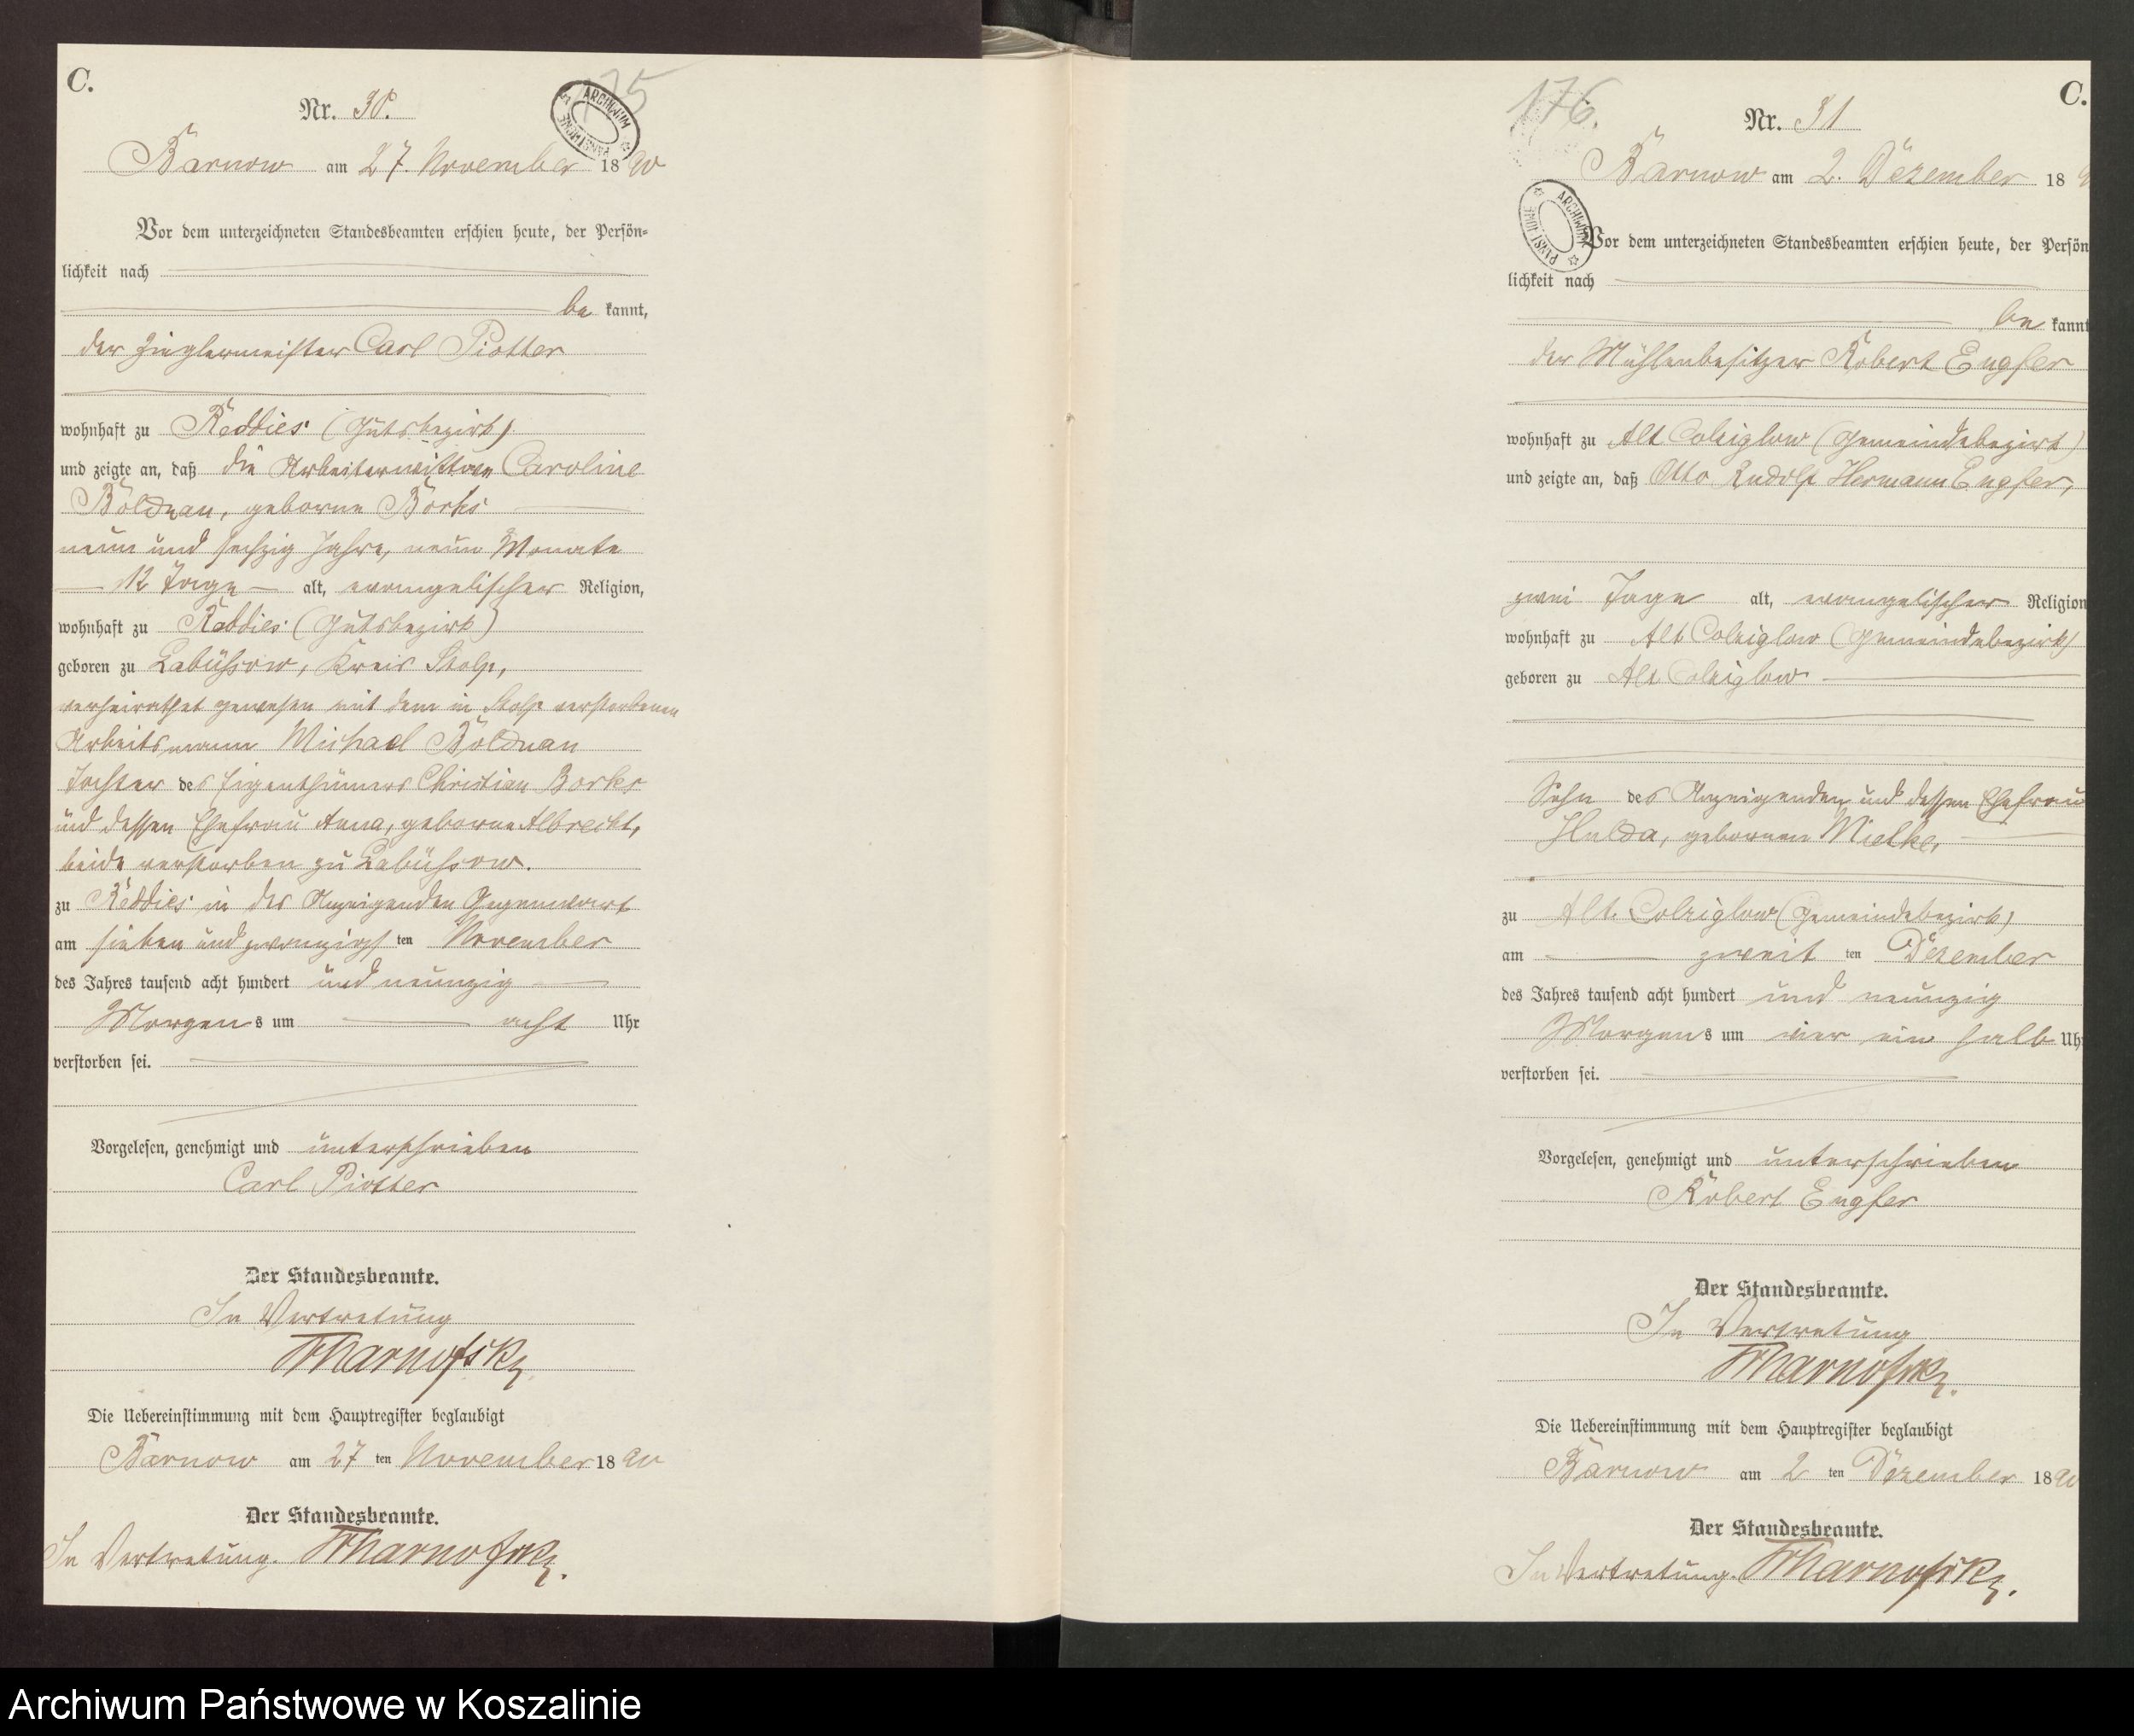 C.
175
ARCHIWUM PAŃSTWOWE
Nr. 30.
Barnow am 27. November 1890
Vor dem unterzeichneten Standesbeamten erschien heute, der Persön-
lichkeit nach
be kannt,
der Zieglermeister Carl Piotter
wohnhaft zu Reddies (Gutsbezirk)
und zeigte an, daß die Arbeiterwittwe Caroline
Boldnan, geborne Borks
neun und sechzig Jahre, neun Monate
12 Tage alt, evangelischer Religion,
wohnhaft zu Reddies (Gutsbezirk)
geboren zu Labüssow, Kreis Stolp,
verheirathet gewesen mit dem in Stolp verstorbenen
Arbeitsmann Michael Boldnan
Tochter des Eigenthümers Christian Borks
und dessen Ehefrau Anna, geborne Albrecht,
beide verstorben zu Labüssow.
zu Reddies in des Anzeigenden Gegenwart
am sieben und zwanzigsten November
des Jahres tausend acht hundert und neunzig
Morgens um acht Uhr
verstorben sei.
Vorgelesen, genehmigt und unterschrieben
Carl Piotter
Der Standesbeamte.
In Vertretung
Die Uebereinstimmung mit dem Hauptregister beglaubigt
Barnow am 27 ten November 1890
Der Standesbeamte.
In Vertretung.
C.
176.
ARCHIWUM PAŃSTWOWE
Nr. 31
Barnow am 2. Dezember 18 9
Vor dem unterzeichneten Standesbeamten erschien heute, der Persön
lichkeit nach
be kannt
der Mühlenbesitzer Robert Engfer
wohnhaft zu Alt Colziglow (Gemeindebezirk)
und zeigte an, daß Otto Rudolf Hermann Engfer,
zwei Tage alt, evangelischer Religion
wohnhaft zu Alt Colziglow (Gemeindebezirk)
geboren zu Alt Colziglow
Sohn des Anzeigenden und dessen Ehefrau
Hulda, gebornen Mielke,
zu Alt Colziglow (Gemeindebezirk)
am zweit ten Dezember
des Jahres tausend acht hundert und neunzig
Morgens um vier ein halb Uh
verstorben sei.
Vorgelesen, genehmigt und unterschrieben
Robert Engfer
Der Standesbeamte.
In Vertretung
Die Uebereinstimmung mit dem Hauptregister beglaubigt
Barnow am 2 ten Dezember 1890
Der Standesbeamte.
In Vertretung.
Archiwum Państwowe w Koszalinie